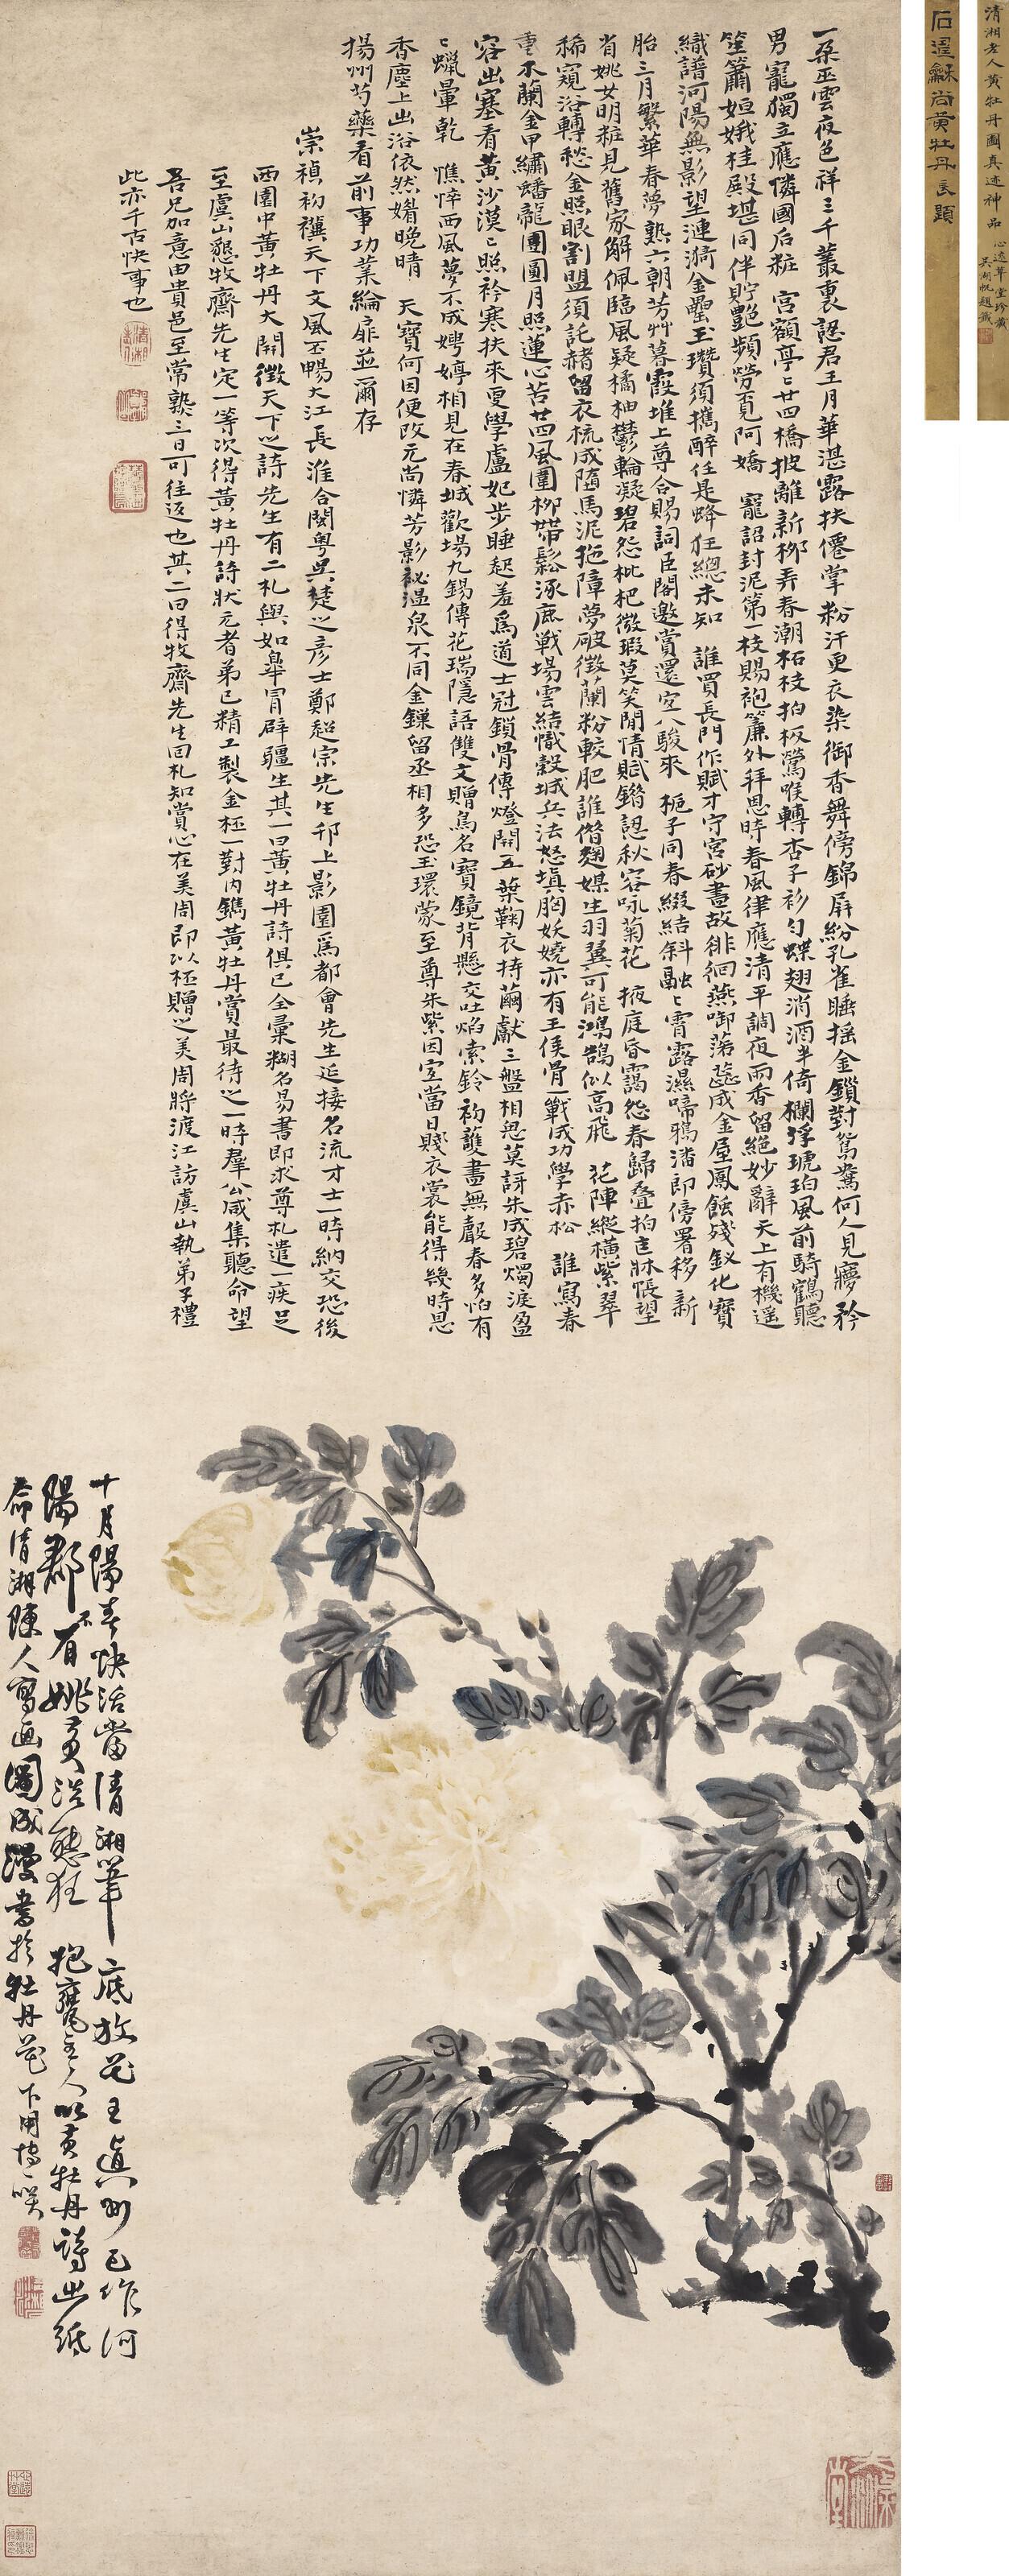 清湘老人黃牡丹圖真迹神品
心遠草堂珍藏
吳湖帆題籤
石濤龢尚黃牡丹長題
一朶巫雲夜色祥三千叢裏認君王月華湛露扶僊掌粉汗更衣染御香舞傍錦屏紛孔雀睡搖金鎖對鴛鴦何人見寢矜
男寵獨立應憐國后粧 宮額亭亭廿四橋披離新柳弄春潮柘枝拍板鶯喉轉杏子衫勻蝶翅消酒半倚欄浮琥珀風前騎鶴聽
笙簫姮娥桂殿堪同伴貯艷頻勞覓阿嬌 寵詔封泥第一枝賜袍簾外拜恩時春風律應清平調夜雨香留絕妙辭天上有機遥
織譜河陽無影望漣漪金罍玉瓚須攜醉任是蜂狂總未知 誰買長門作賦才守宮砂畫故徘徊燕啣落蕋成金屋鳳蝕殘釵化寶
胎三月繁華春夢熟六朝芳艸暮霞堆上尊合賜詞臣閣邀賞還定八駿來 梔子同春綴結斜融融霄露濕啼鴉潘郎傍署移新
省姚女明粧見舊家解佩臨風疑橘柚鬱輪凝碧怨枇杷微瑕莫笑閒情賦錯認秋容咏菊花 掖庭昏靄怨春歸叠拍匡牀悵望
稀窺浴轉愁金照眼割盟須託赭留衣梳成隨馬泥拖障夢破徵蘭粉較肥誰借麹媒生羽翼可能鴻鵠似高飛 花陣縱橫紫翠
重木蘭金甲繡蟠龍團圓月照蓮心苦廿四風圍柳帶鬆涿鹿戰場雲結幟穀城兵法怒塡胸妖嬈亦有王侯骨一戰成功學赤松 誰寫春
容出塞看黃沙漠漠照衿寒扶來更學盧妃步睡起羞爲道士冠鎖骨傳燈開五葉鞠衣持繭獻三盤相思莫訝朱成碧燭淚盈
盈蠟暈乾 憔悴西風夢不成娉婷相見在春城歡場九錫傳花瑞隱語雙文贈鳥名寶鏡背懸交吐焰索鈴初護畫無聲春多怕有
香塵上出浴依然媠晚晴 天寶何因便改元尚憐芳影祕溫泉不同金鏁留丞相多恐玉環蒙至尊朱紫因定當日賤衣裳能得幾時恩
揚州芍藥看前事功業綸扉並爾存
崇禎初禩天下文風丕暢大江長淮合閩粵吳楚之彥士鄭超宗先生邗上影園爲都會先生延接名流才士一時納交恐後
西園中黃牡丹大開徵天下之詩先生有二札與如皋冒辟疆生其一曰黃牡丹詩俱已全彙糊名易書即求尊札遣一疾足
至虞山懇牧齋先生定一等次得黃牡丹詩狀元者弟已精工製金柸一對內鐫黃牡丹賞最待之一時羣公咸集聽命望
吾兄加意由貴邑至常熟三日可往返也其二曰得牧齋先生回札知賞心在美周即以柸贈之美周將渡江訪虞山執弟子禮
此亦千古快事也
十月陽春快活當清湘筆底放花王真州已作河
陽郡不有姚黃洗憨狂 抱甕主人以黃牡丹詩出紙
命清湘陳人寫画圖成漫書於牡丹花下用博一咲